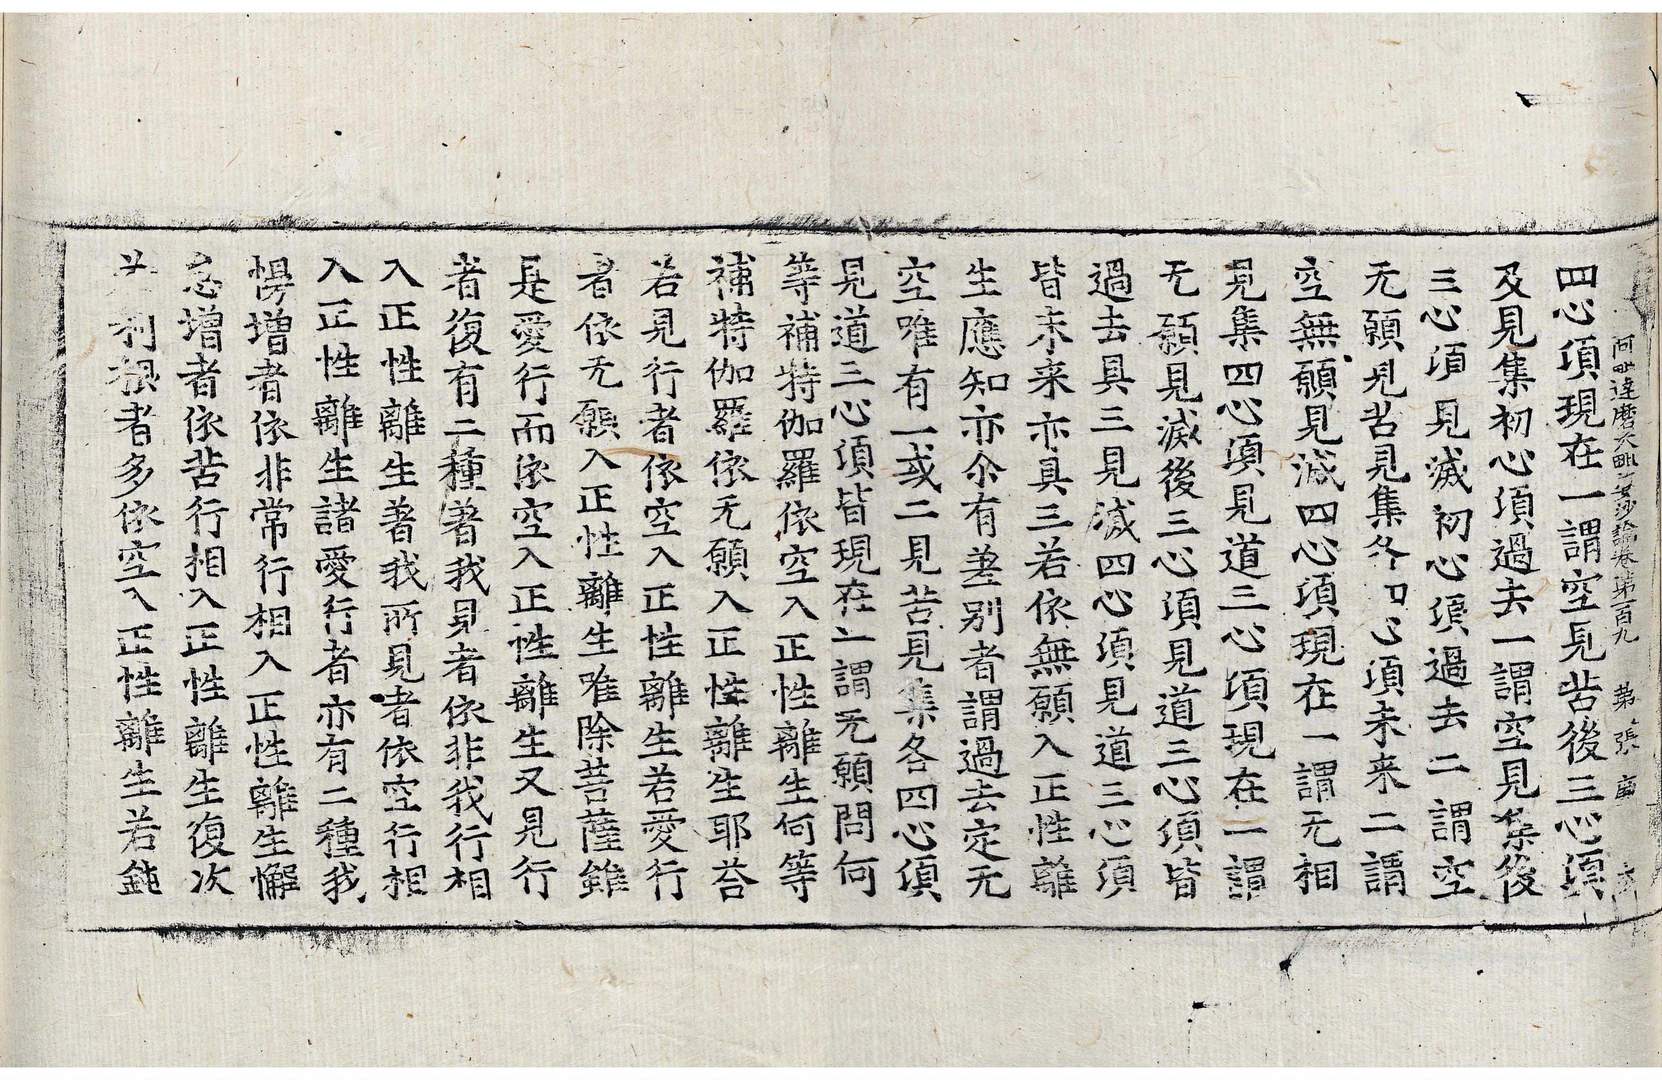 阿毗達磨大毗婆沙論卷第一百九　第　張　庸
四心頃現在一謂空見苦後三心須
及見集初心頃過去一謂空見集後
三心項見滅初心須過去二謂空
无願見苦見集各四心頃未来二謂
空無願見滅四心頃現在一謂无相
見集四心頃見道三心頃現在一謂
无願見滅後三心須見道三心須皆
過去具三見滅四心須見道三心須
皆未来亦具三若依無願入正性離
生應知亦尒有差别者謂過去定无
空唯有一或二見苦見集各四心須
見道三心須皆現在一謂无願問何
等補特伽羅依空入正性離生何等
補特伽羅依无願入正性離生耶荅
若見行者依空入正性離生若愛行
者依无願入正性離生唯除菩薩雖
是愛行而依空入正性離生又見行
者復有二種著我見者依非我行相
入正性離生著我所見者依空行相
入正性離生諸愛行者亦有二種我
慢增者依非常行相入正性離生懈
怠增者依苦行相入正性離生復次
若利根者多依空入正性離生若鈍